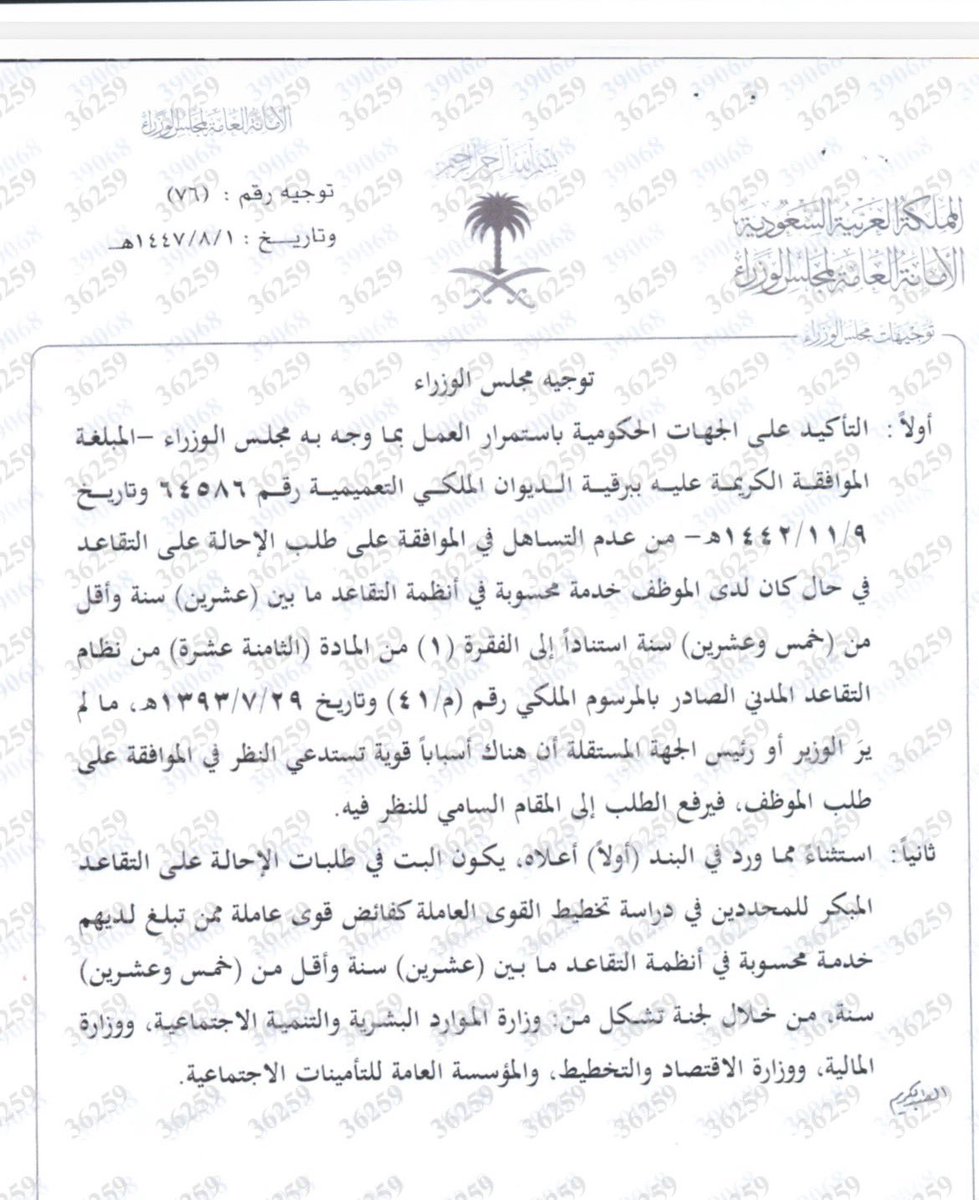 الأمانة العامة لمجلس الوزراء
بسم الله الرحمن الرحيم
المملكة العربية السعودية
الأمانة العامة لمجلس الوزراء
توجيه رقم : (٧٦)
وتاريـــخ : ١٤٤٧/٨/١هـ
توجيهات مجلس الوزراء
توجيه مجلس الوزراء
أولاً : التأكيد على الجهات الحكومية باستمرار العمل بما وجه به مجلس الوزراء -المبلغة
الموافقة الكريمة عليه ببرقية الديوان الملكي التعميمية رقم ٦٤٥٨٦ وتاريخ
١٤٤٢/١١/٩هـ- من عدم التساهل في الموافقة على طلب الإحالة على التقاعد
في حال كان لدى الموظف خدمة محسوبة في أنظمة التقاعد ما بين (عشرين) سنة وأقل
من (خمس وعشرين) سنة استناداً إلى الفقرة (١) من المادة (الثامنة عشرة) من نظام
التقاعد المدني الصادر بالمرسوم الملكي رقم (م/٤١) وتاريخ ١٣٩٣/٧/٢٩هـ، ما لم
يرَ الوزير أو رئيس الجهة المستقلة أن هناك أسباباً قوية تستدعي النظر في الموافقة على
طلب الموظف، فيرفع الطلب إلى المقام السامي للنظر فيه.
ثانياً : استثناءً مما ورد في البند (أولاً) أعلاه، يكون البت في طلبات الإحالة على التقاعد
المبكر للمحددين في دراسة تخطيط القوى العاملة كفائض قوى عاملة ممن تبلغ لديهم
خدمة محسوبة في أنظمة التقاعد ما بين (عشرين) سنة وأقل من (خمس وعشرين)
سنة، من خلال لجنة تشكل من: وزارة الموارد البشرية والتنمية الاجتماعية، ووزارة
المالية، ووزارة الاقتصاد والتخطيط، والمؤسسة العامة للتأمينات الاجتماعية.
36259
39068